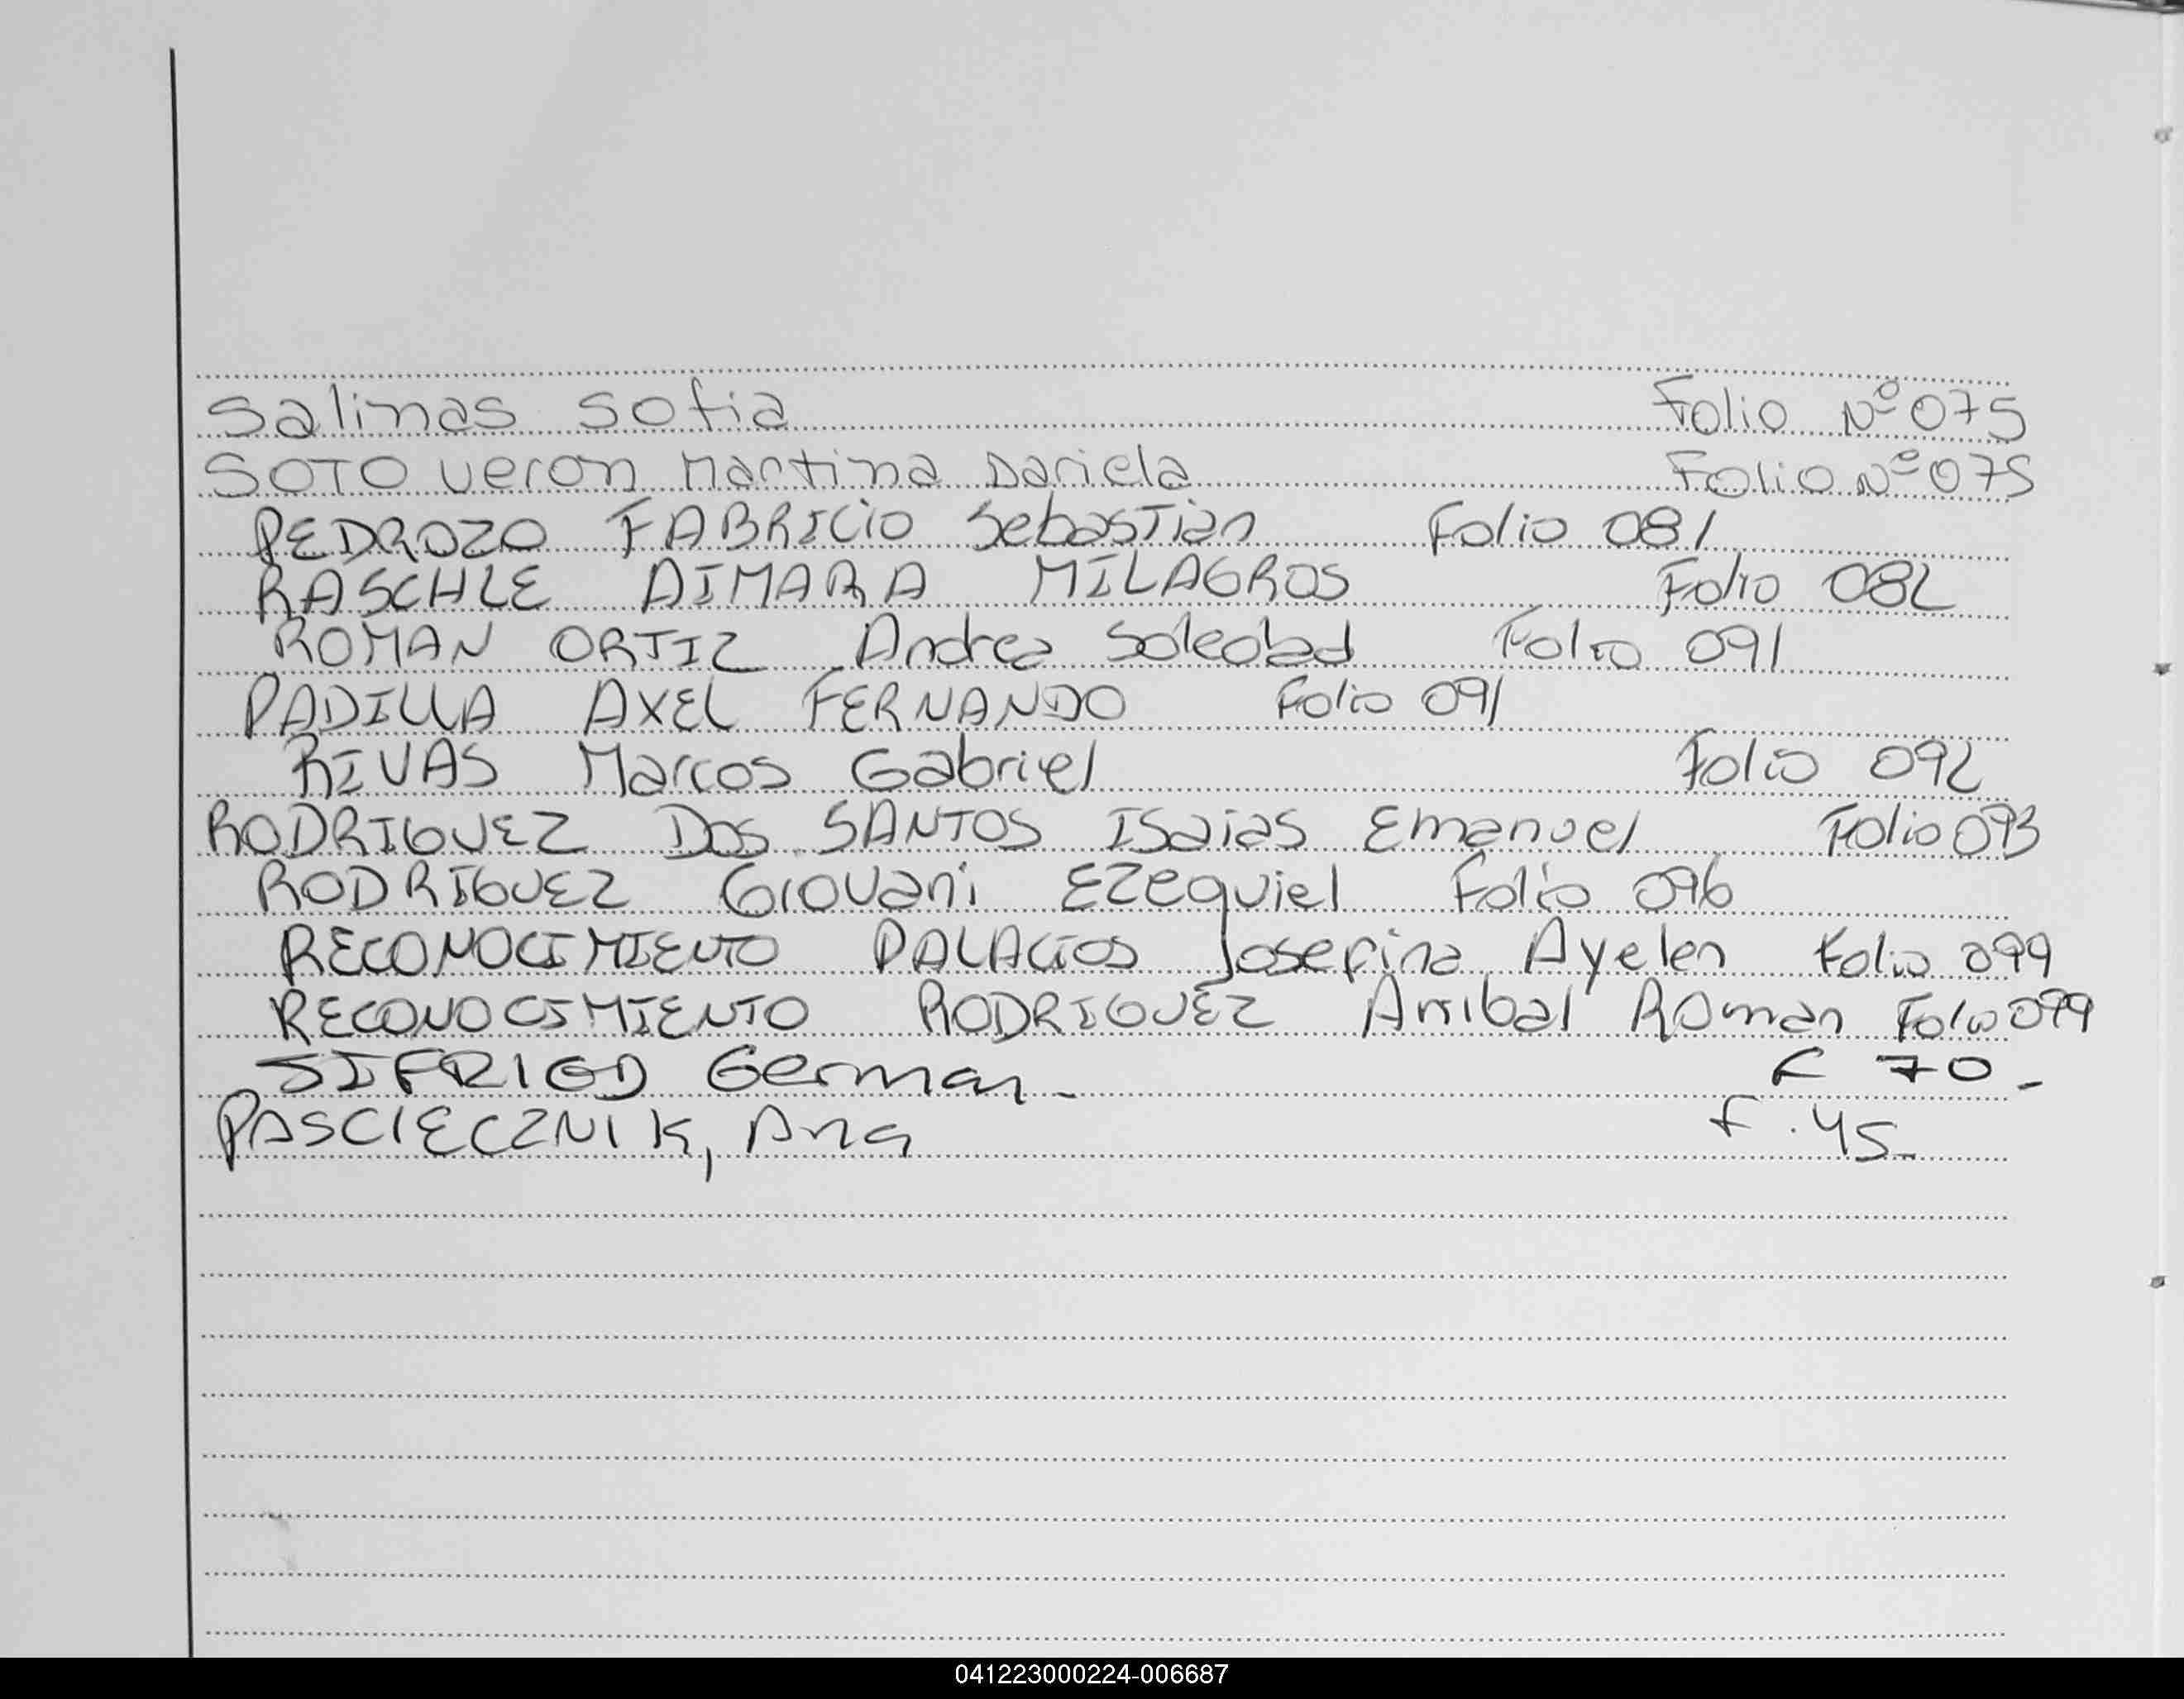 Salinas Sofia Folio Nº 075
SOTO Veron Martina Daniela Folio Nº 075
PEDROZO FABRICIO Sebastian Folio 081
RASCHLE AIMARA MILAGROS Folio 082
ROMAN ORTIZ Andrea Soledad Folio 091
PADILLA AXEL FERNANDO Folio 091
RIVAS Marcos Gabriel Folio 092
RODRIGUEZ DOS SANTOS ISaias Emanuel Folio 093
RODRIGUEZ Giovani EZequiel Folio 096
RECONOCIMIENTO PALACIOS Josefina Ayelen Folio 099
RECONOCIMIENTO RODRIGUEZ Anibal Roman Folio 099
SIFRIGD German - F 70 -
PASCIECZNIK, Ana F. 45 -
041223000224-006687